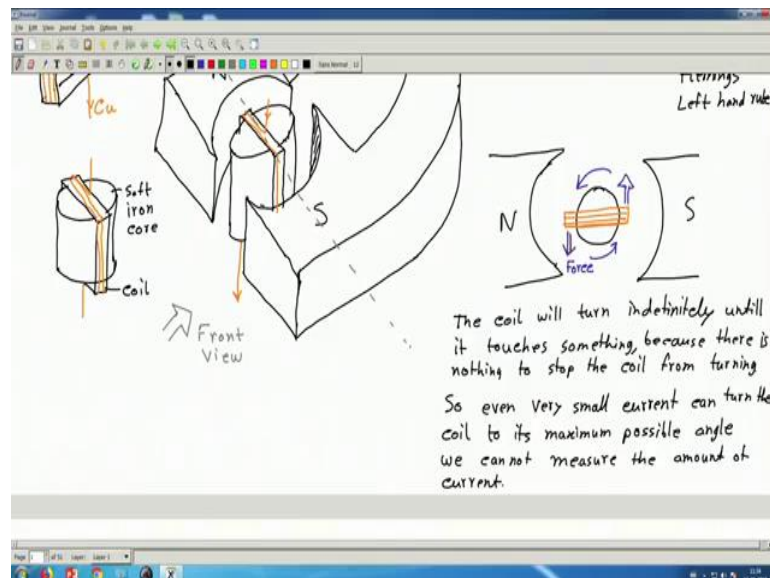 File Edit View Journal Tools Options Help
Sans Normal 12
Cu
Left hand rule
soft
iron
core
coil
N
S
Front
View
N
S
Force
The coil will turn indetinitely untill
it touches something, because there is
nothing to stop the coil from turning
So even very small current can turn the
coil to its maximum possible angle
we cannot measure the amount of
current.
Page 1 of 51 Layer: Layer 1